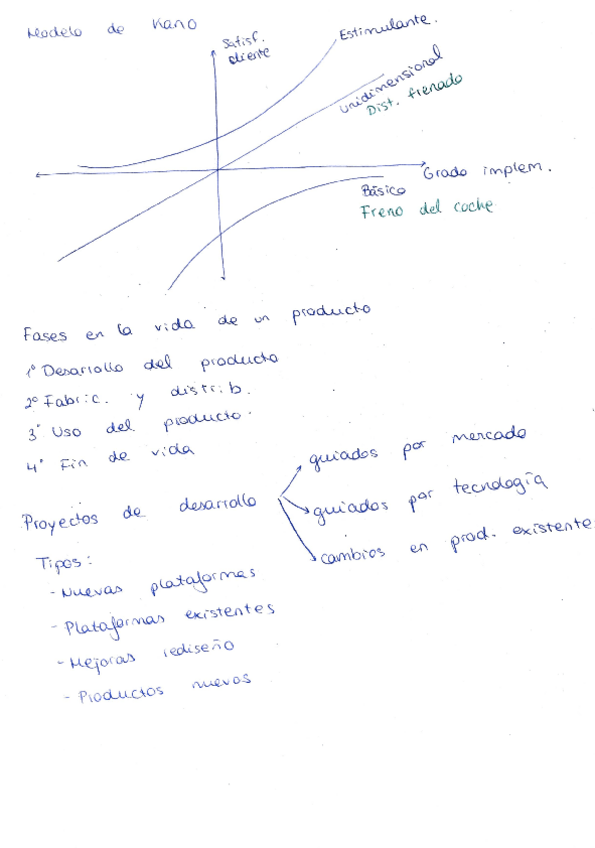 Modelo de Kano
Satisf.
cliente
Estimulante.
Unidimensional
Dist. frenado
Grado implem.
Básico
Freno del coche
Fases en la vida de un producto
1º Desarrollo del producto
2º Fabric. y distrib.
3º Uso del producto.
4º Fin de vida
Proyectos de desarrollo
guiados por mercado
guiados por tecnología
cambios en prod. existente
Tipos:
- Nuevas plataformas
- Plataformas existentes
- Mejoras rediseño
- Productos nuevos